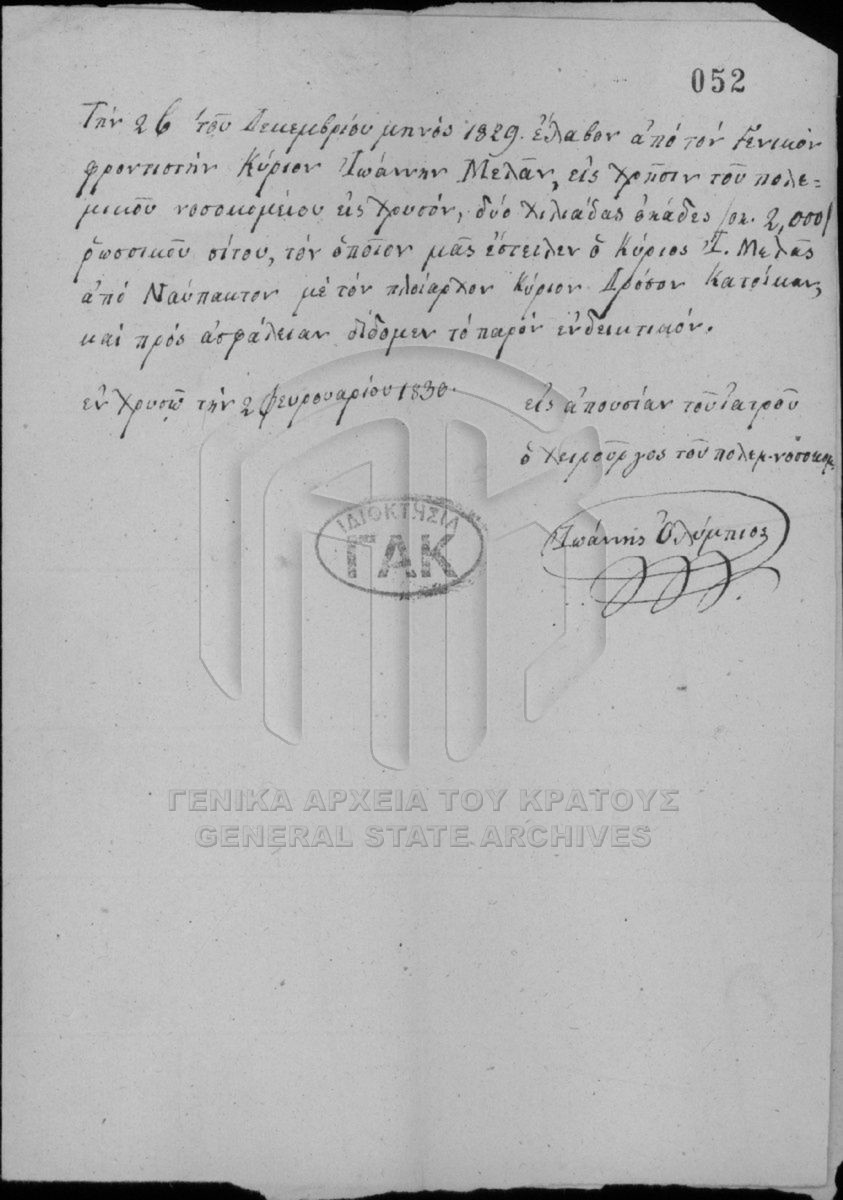 052
Τὴν 26 τοῦ Δεκεμβρίου μηνὸς 1829. ἔλαβον ἀπὸ τὸν Γενικὸν
φροντιστὴν Κύριον Ἰωάννην Μελᾶν, εἰς χρῆσιν τοῦ πολε=
μικοῦ νοσοκομείου εἰς Χρυσόν, δύο χιλιάδας ὀκάδες /οκ. 2,000/
ῥωσσικοῦ σίτου, τὸν ὁποῖον μᾶς ἔστειλεν ὁ Κύριος Ἰ. Μελᾶς
ἀπὸ Ναύπακτον μὲ τὸν πλοίαρχον Κύριον Δρόσον Κατζίκαν,
καὶ πρὸς ἀσφάλειαν δίδομεν τὸ παρὸν ἐνδεικτικόν.
ἐν Χρυσῷ τὴν 2 φευρουαρίου 1830.
εἰς ἀπουσίαν τοῦ ἰατροῦ
ὁ χειροῦργος τοῦ πολεμ. νοσοκομ.
Ἰωάννης Ὀλύμπιος
ΙΔΙΟΚΤΗΣΙΑ
ΓΑΚ
ΓΕΝΙΚΑ ΑΡΧΕΙΑ ΤΟΥ ΚΡΑΤΟΥΣ
GENERAL STATE ARCHIVES